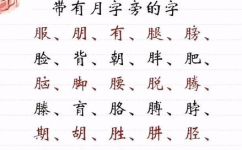 带有月字旁的字
服、朋、有、腿、膀、
脸、背、朝、胖、肥、
脑、脚、腰、脱、腾、
滕、育、胳、膊、脖、
期、胡、胜、肼、胫、